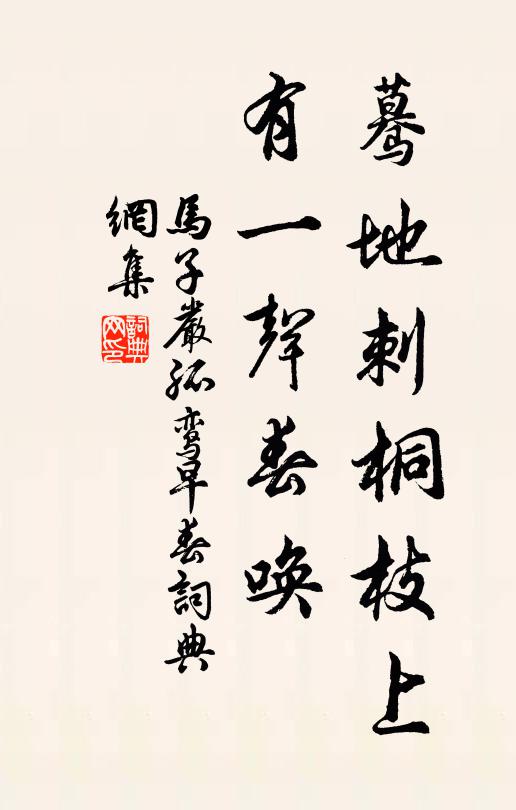 蓦地刺桐枝上
有一聲春唤
馬子嚴孤鸾早春詞典
網集
詞典
网印